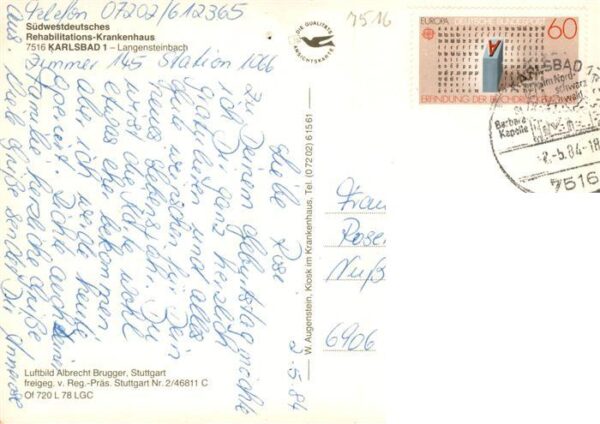 Telefon 07202/612365
Südwestdeutsches
Rehabilitations-Krankenhaus
7516 KARLSBAD 1 – Langensteinbach
Zimmer 145 Station 1066
7516
DIE QUALITÄTS
ANSICHTSKARTE
EUROPA DEUTSCHE BUNDESPOST
60
ERFINDUNG DER BUCHDRUCKERKUNST
KARLSBAD
im Nord-
schwarz
wald
Barbara
Kapelle
-2.-5.84-18
7516
2.5.84
Liebe Rosi
zu Deinem Geburtstag möchte
ich Dir ganz herzlich
gratulieren und alles
Gute wünschen für Dein
neues Lebensjahr. Du
wirst die Karte wohl
etwas eher bekommen
aber ich werde heute
operiert. Dich auch Deine
Familie herzliche Grüße
Viele Grüße sendet Dir
W. Augenstein, Kiosk im Krankenhaus, Tel. (07202) 61561
Frau
Rose
Nuß
6906
Luftbild Albrecht Brugger, Stuttgart
freigeg. v. Reg.-Präs. Stuttgart Nr. 2/46811 C
Of 720 L 78 LGC